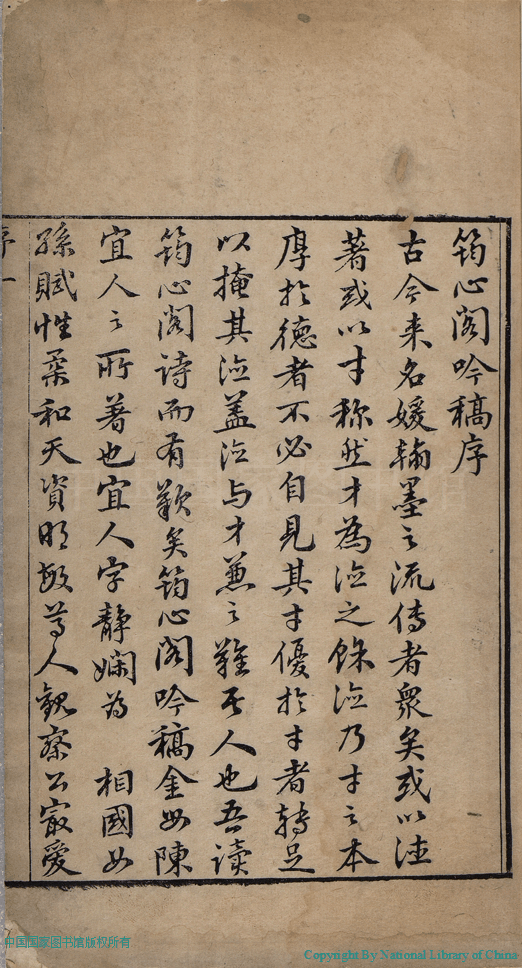 筠心阁吟稿序
古今来名媛翰墨之流传者众矣或以德
著或以才称然才为德之馀德乃才之本
厚於德者不必自见其才优於才者转足
以掩其德盖德与才兼之难其人也吾读
筠心阁诗而有歎矣筠心阁吟稿金如陈
宜人之所著也宜人字静娴为 相國如
孙赋性柔和天資明敏尊人觀察公最爱
序 一
中国国家图书馆版权所有
Copyright By National Library of China